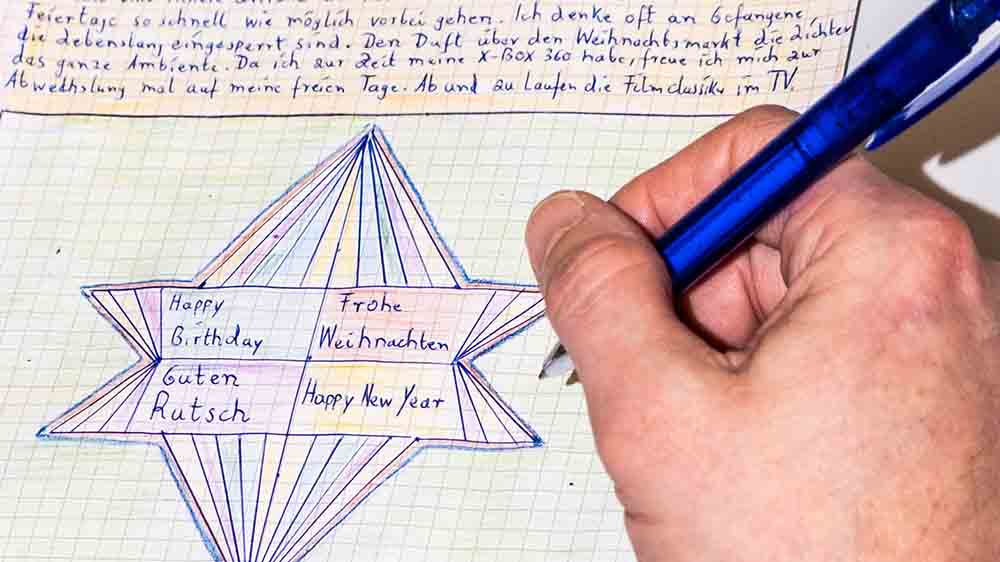 Feiertage so schnell wie möglich vorbei gehen. Ich denke oft an Gefangene,
die lebenslang eingesperrt sind. Den Duft über den Weihnachtsmarkt die Lichter
das ganze Ambiente. Da ich zur Zeit meine X-Box 360 habe, freue ich mich zur
Abwechslung mal auf meine freien Tage. Ab und zu laufen die Filmclassiker im TV.
Happy
Birthday
Frohe
Weihnachten
Guten
Rutsch
Happy New Year